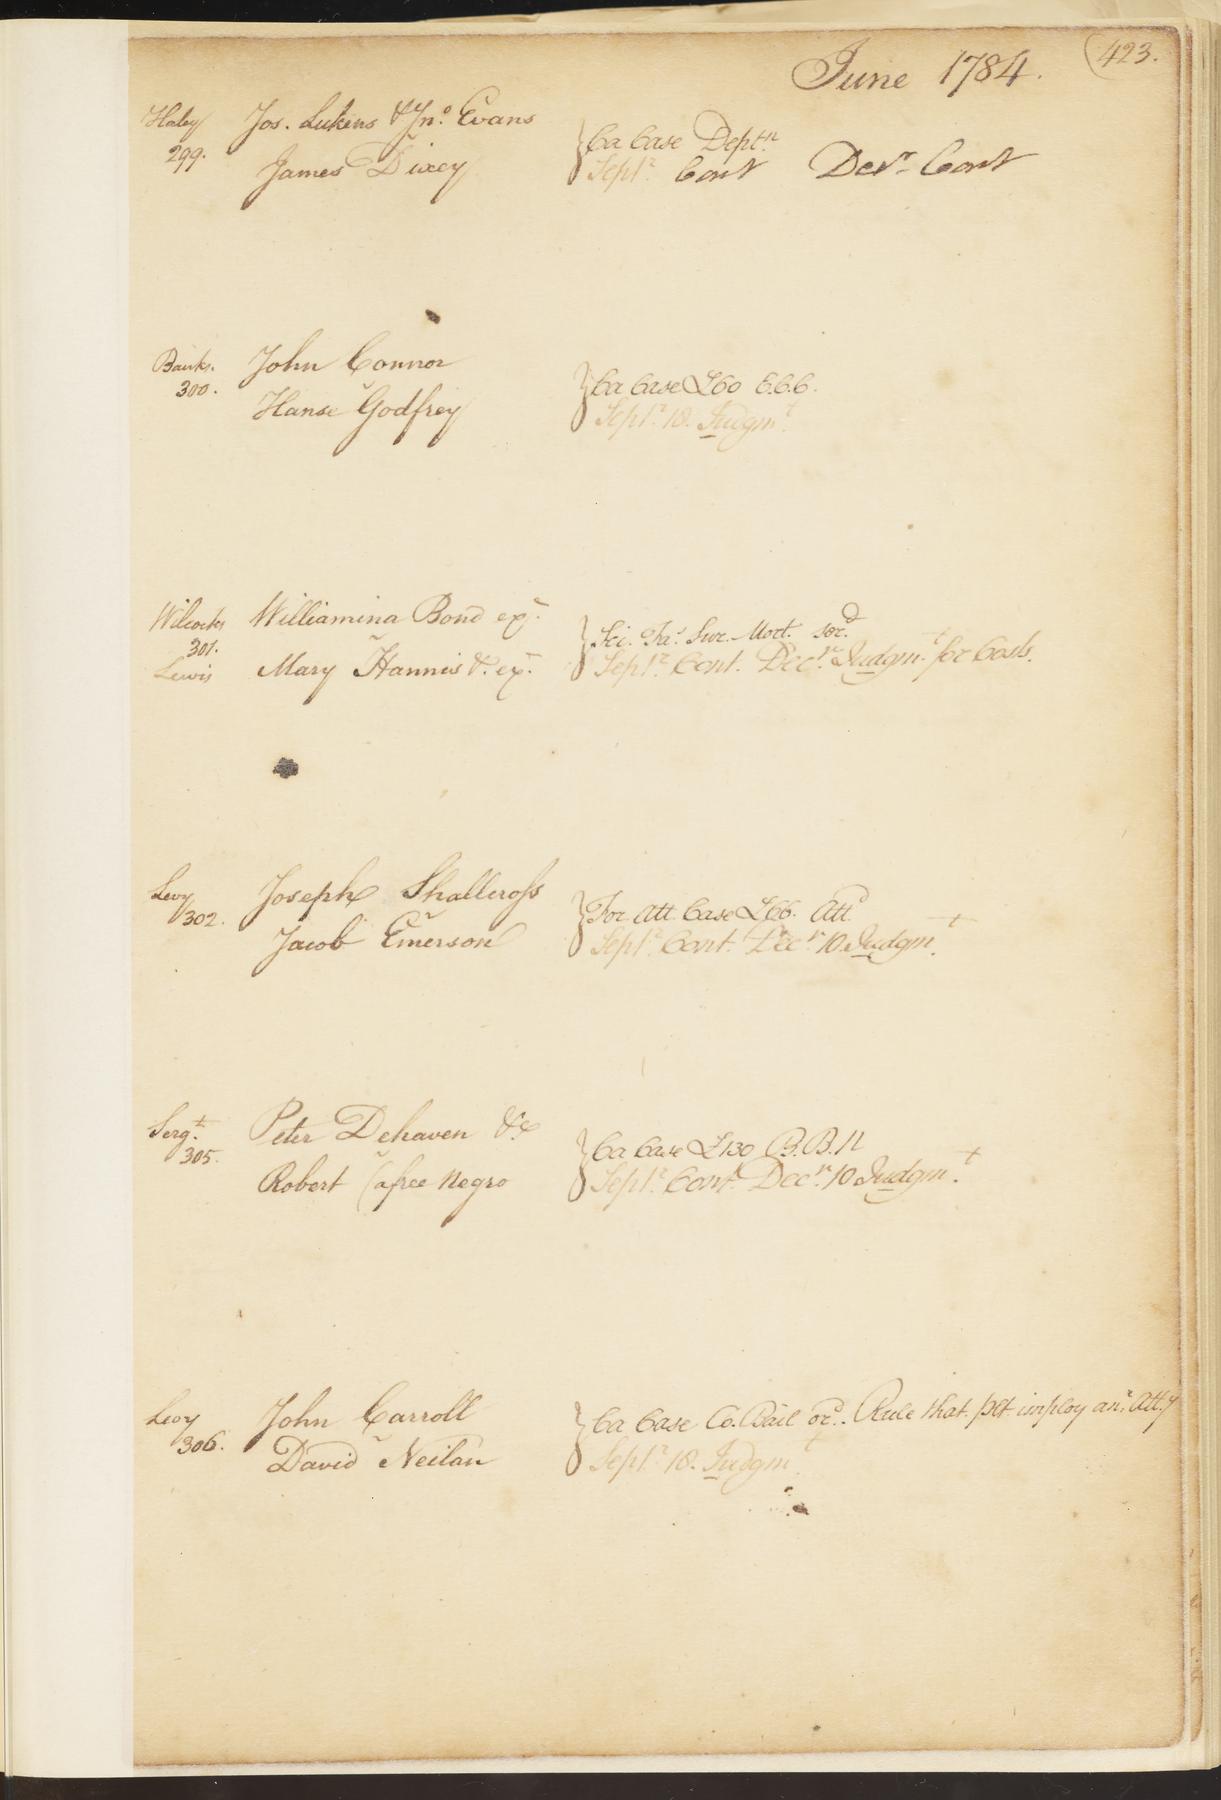 June 1784. (423.
Haley Jos. Lukens & Jno. Evans
299. v
James Dixey
Ca Case Deptn.
Septr. Cont Decr. Cont
Bank. John Connor
300. v
Hanse Godfrey
Ca Case £60 C.C.C.
Septr. 18. Judgmt.
Wilcocks Williamina Bond exr.
301. v
Lewis Mary Hannis &c. exr.
Sci. Fa. Sur. Mort. serd.
Septr. Cont. Decr. Judgmt. for Costs.
Levy Joseph Shallcross
302. v
Jacob Emerson
For. Att. Case £66. Attd.
Septr. Cont. Decr. 10. Judgmt.
Sergt. Peter Dehaven &c
305. v
Robert (a free Negro
Ca Case £130 B.B.N
Septr. Cont. Decr. 10 Judgmt.
Levy John Carroll
306. v
David Neilan
Ca Case Co. Bail ord. Rule that plt imploy anr. Atty
Septr. 18. Judgmt